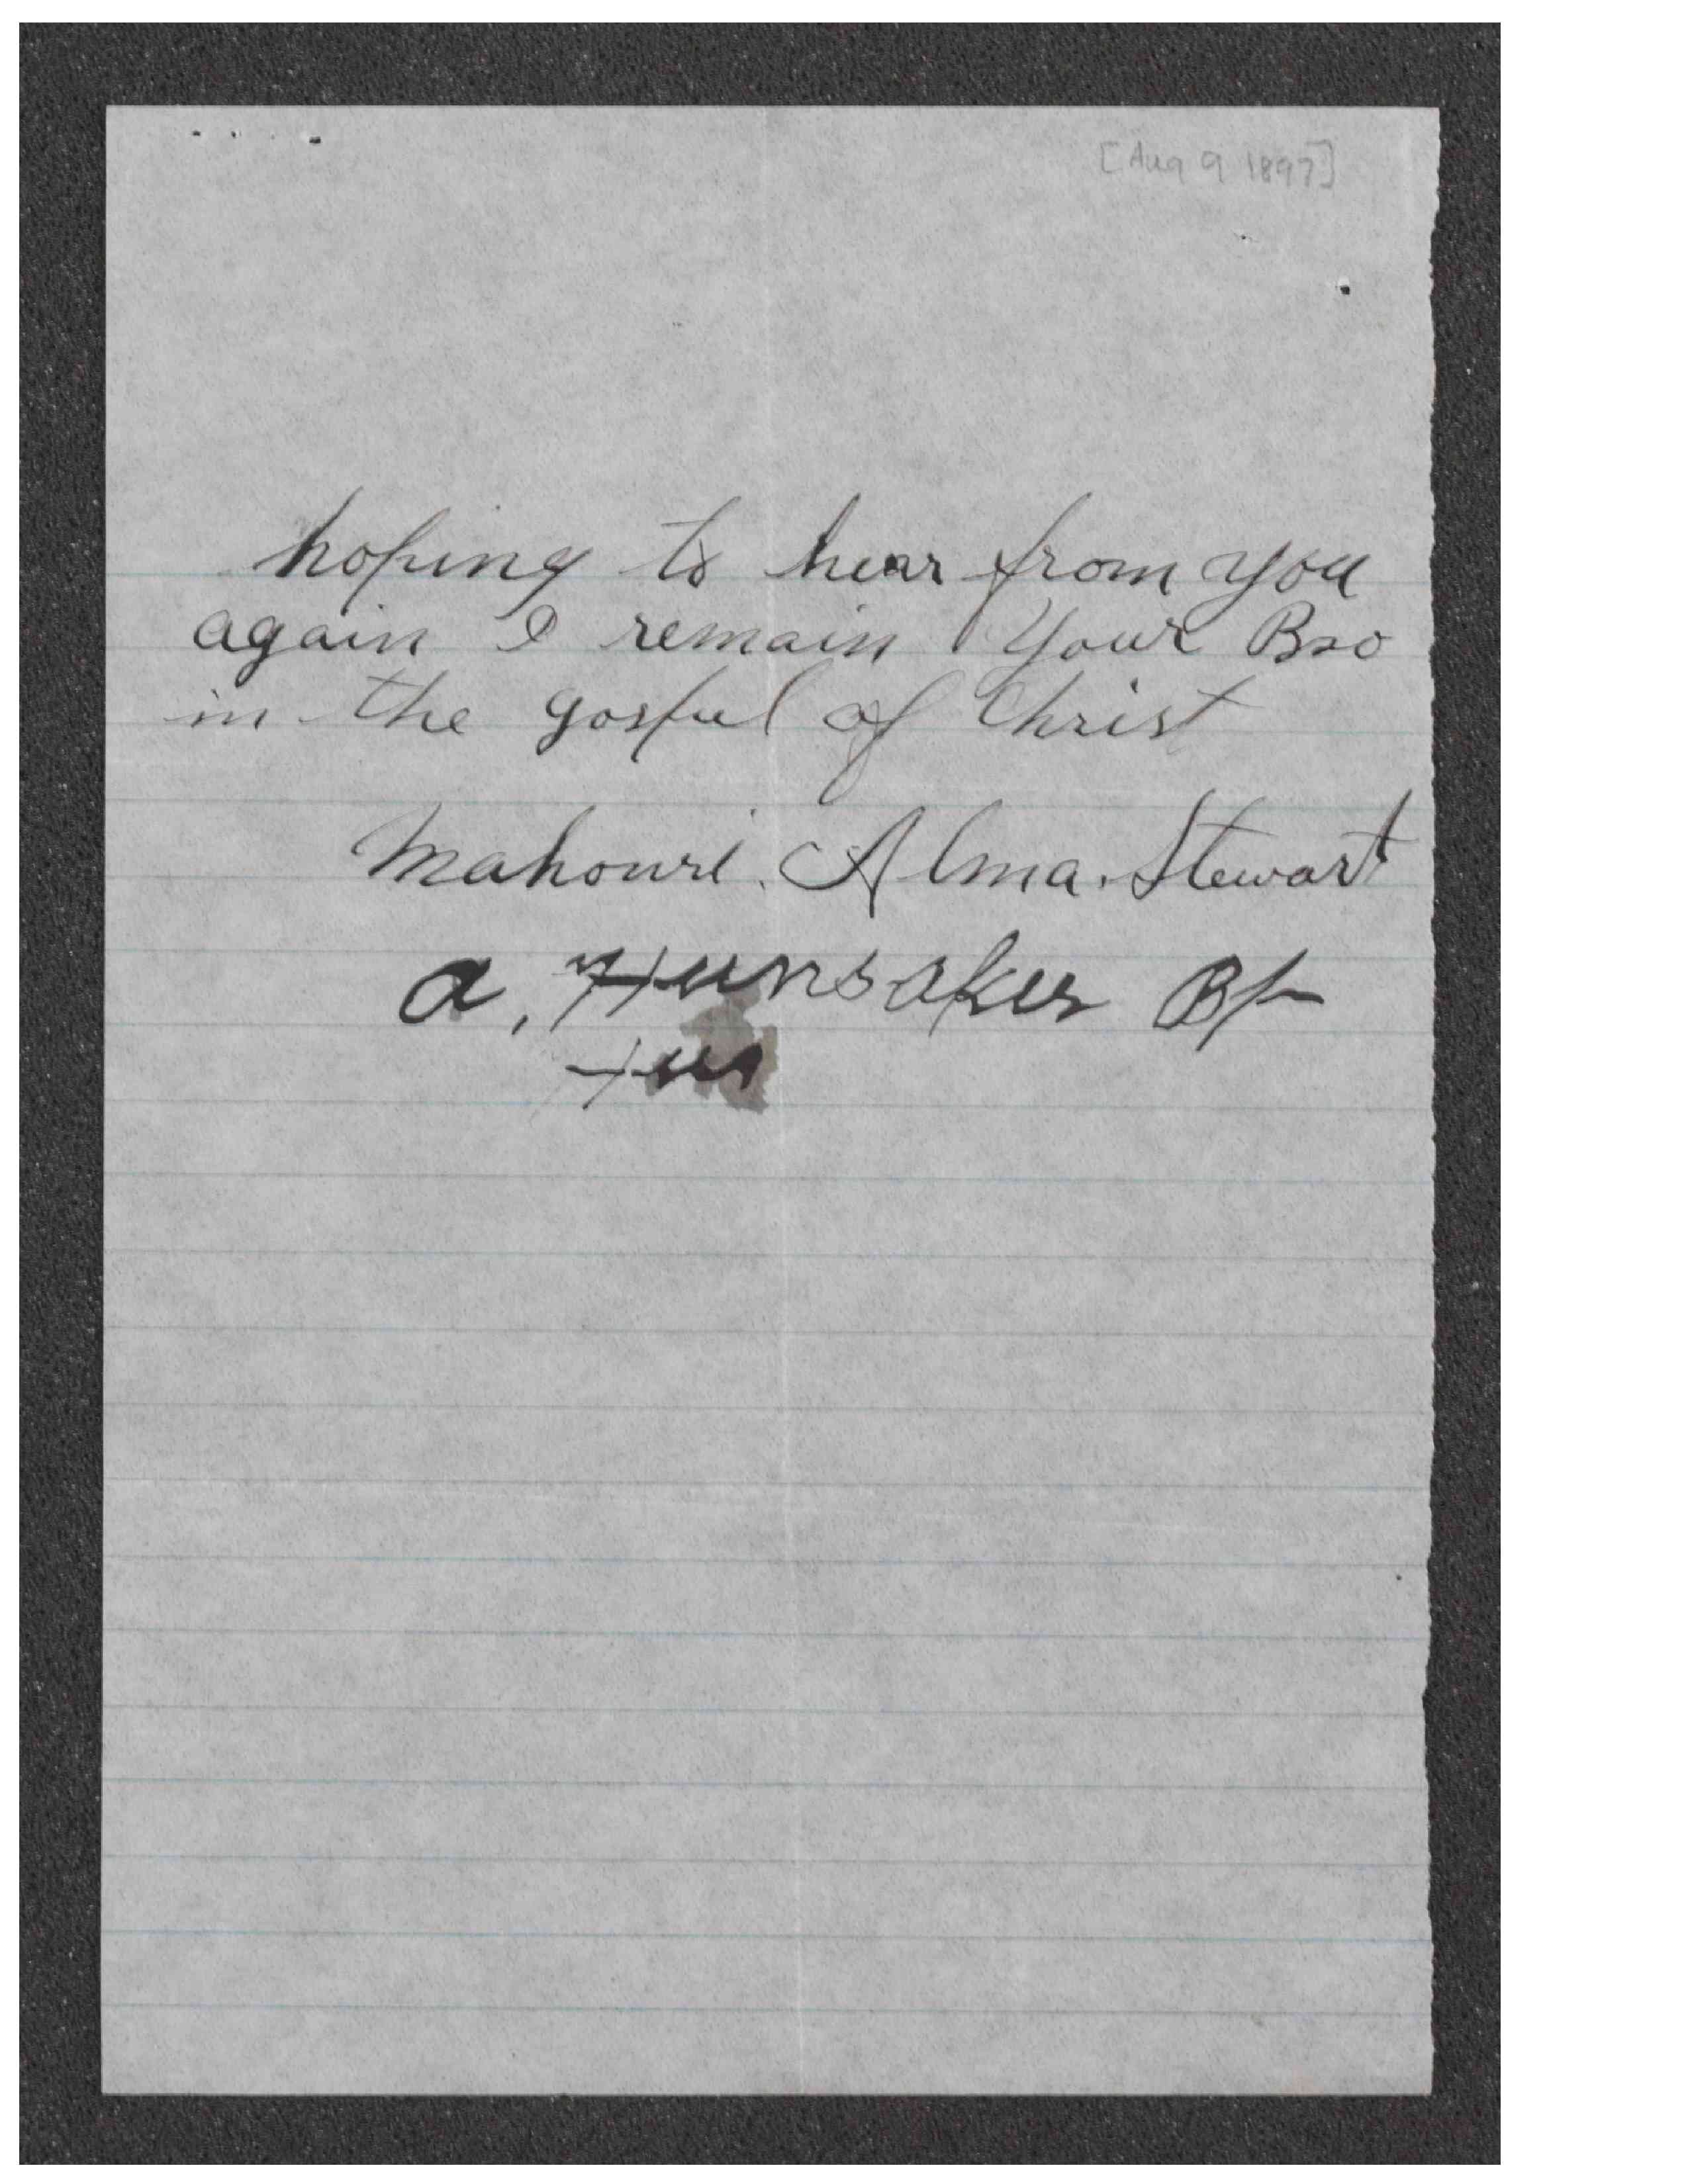 [Aug 9 1897]
hoping to hear from you
again I remain Your Bro
in the gospel of Christ
Mahonri. Alma. Stewart
A, Hunsaker Bp
Hun